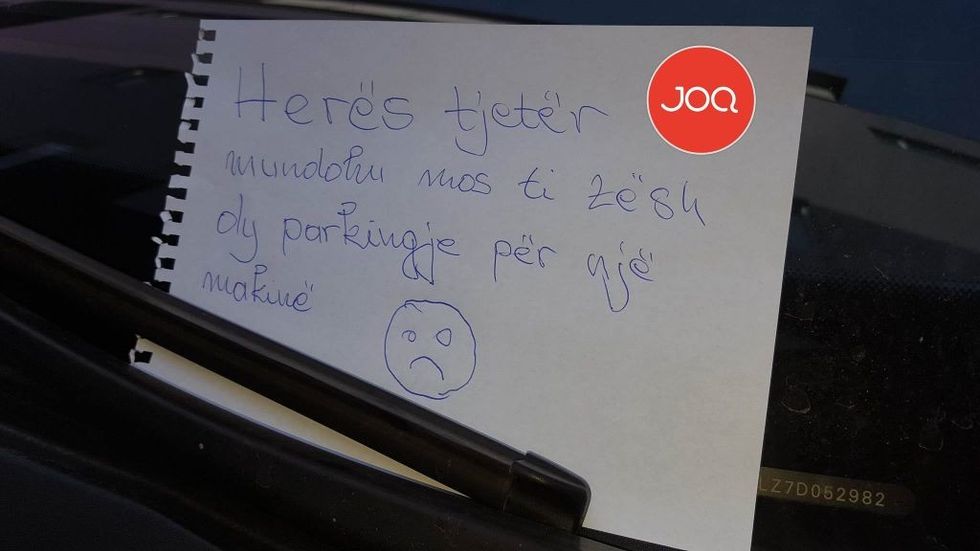 Herës tjetër
JOQ
mundohu mos ti zësh
dy parkingje për një
makinë
LZ7D052982